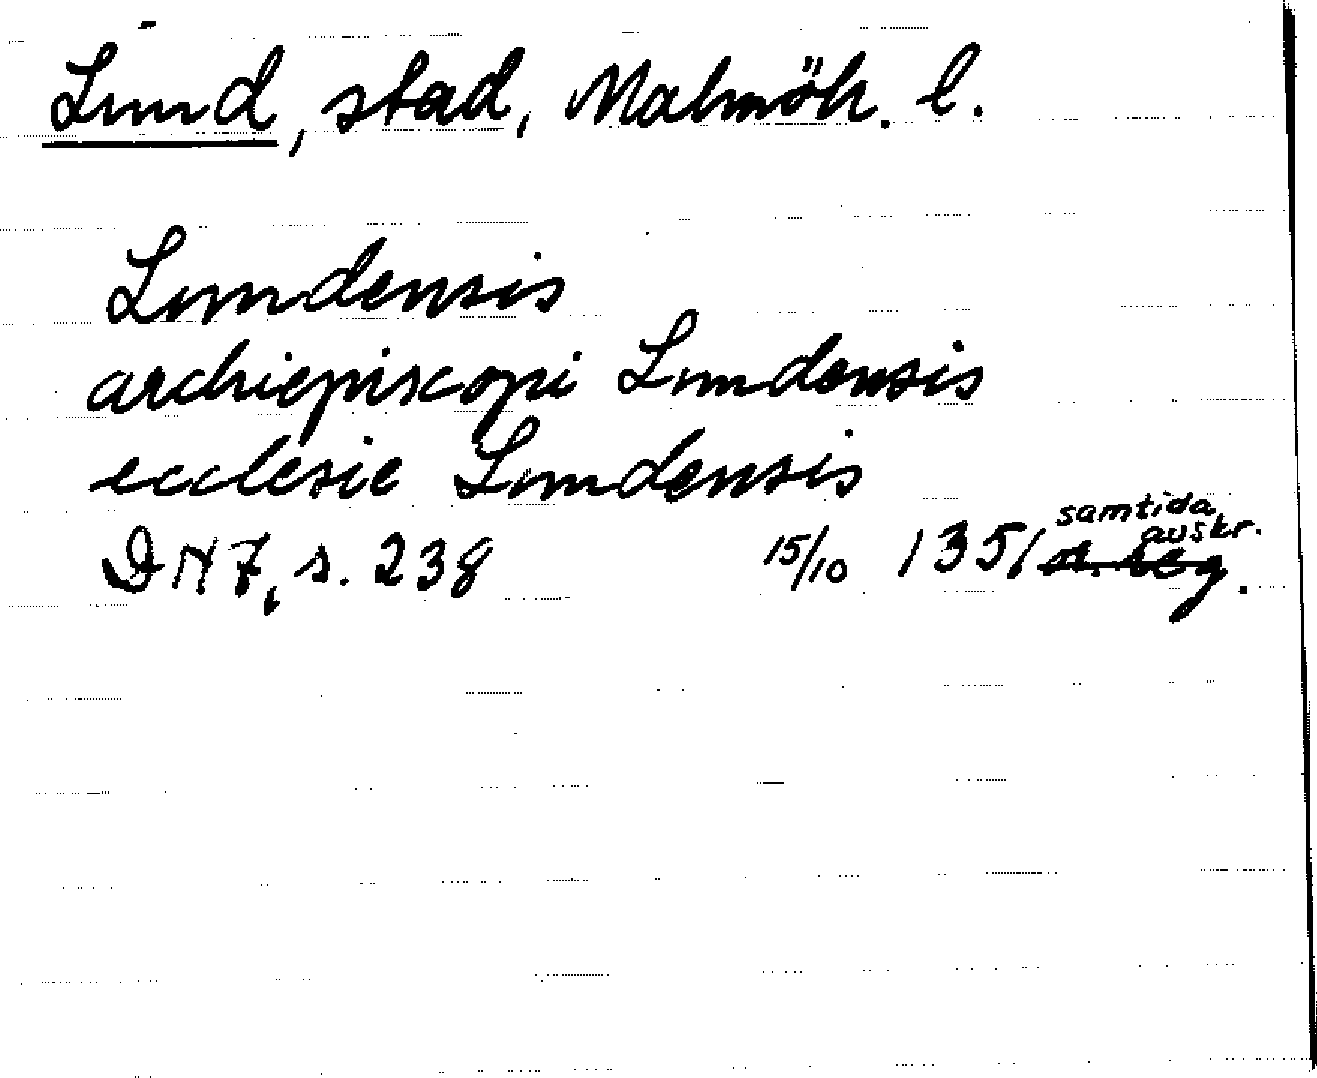 Lund, stad, Malmöh. l.
Lundensis
archiepiscopi Lundensis
ecclesie Lundensis
DN 7, s. 238 15/10 1351 samtida avskr.